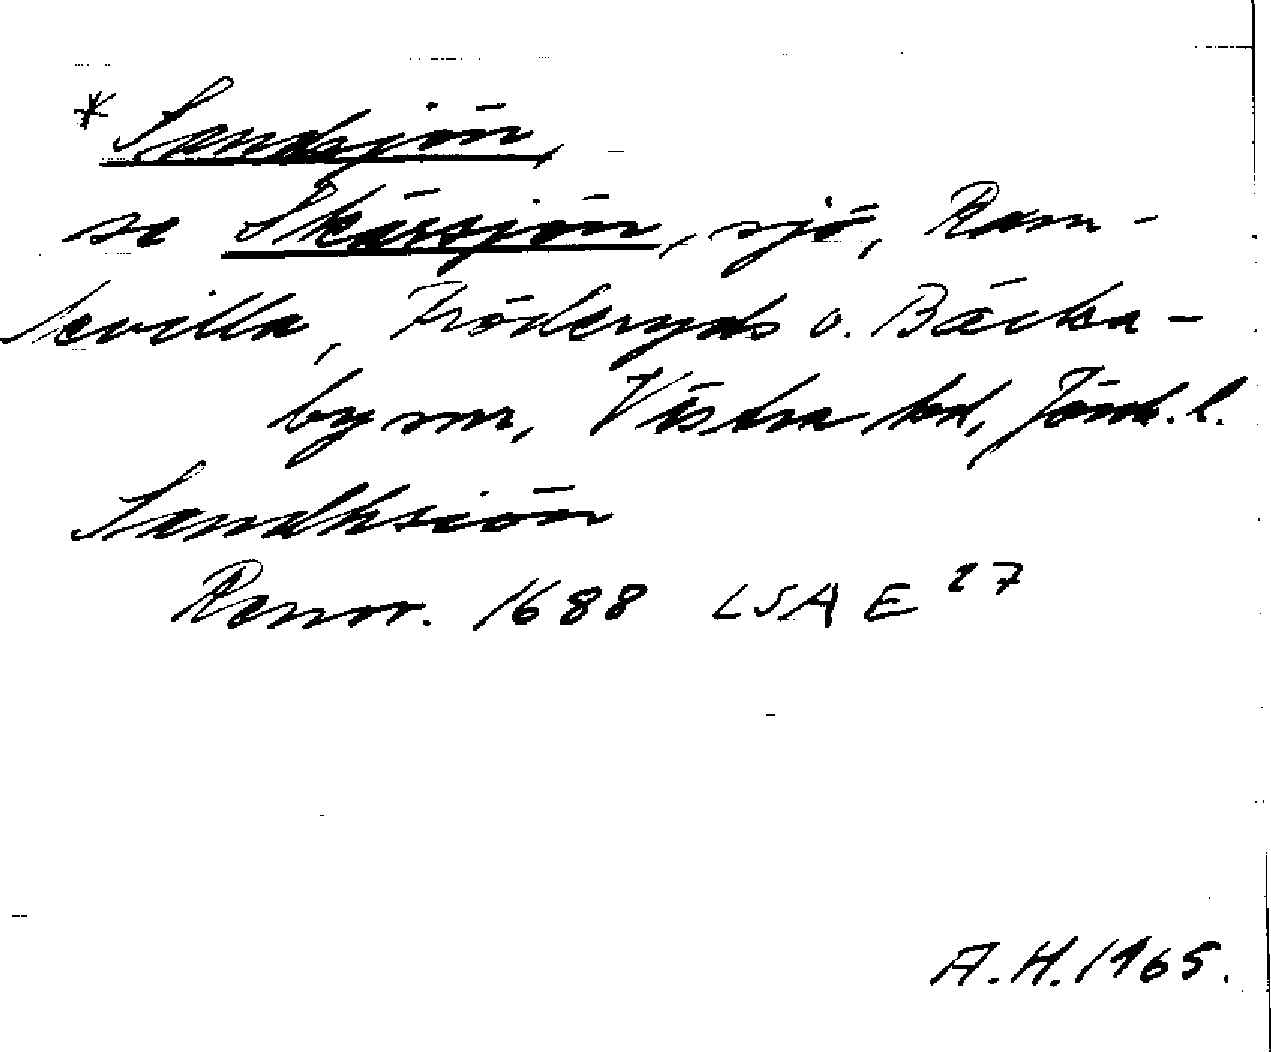 *Sandsjön,
se Skärsjön, sjö, Ram-
kvilla, Fröderyds o. Bäcka-
by snr, Västra hd, Jönk. l.
Sandhsiön
Rannr. 1688 LSA E 27
A.H. 1965.